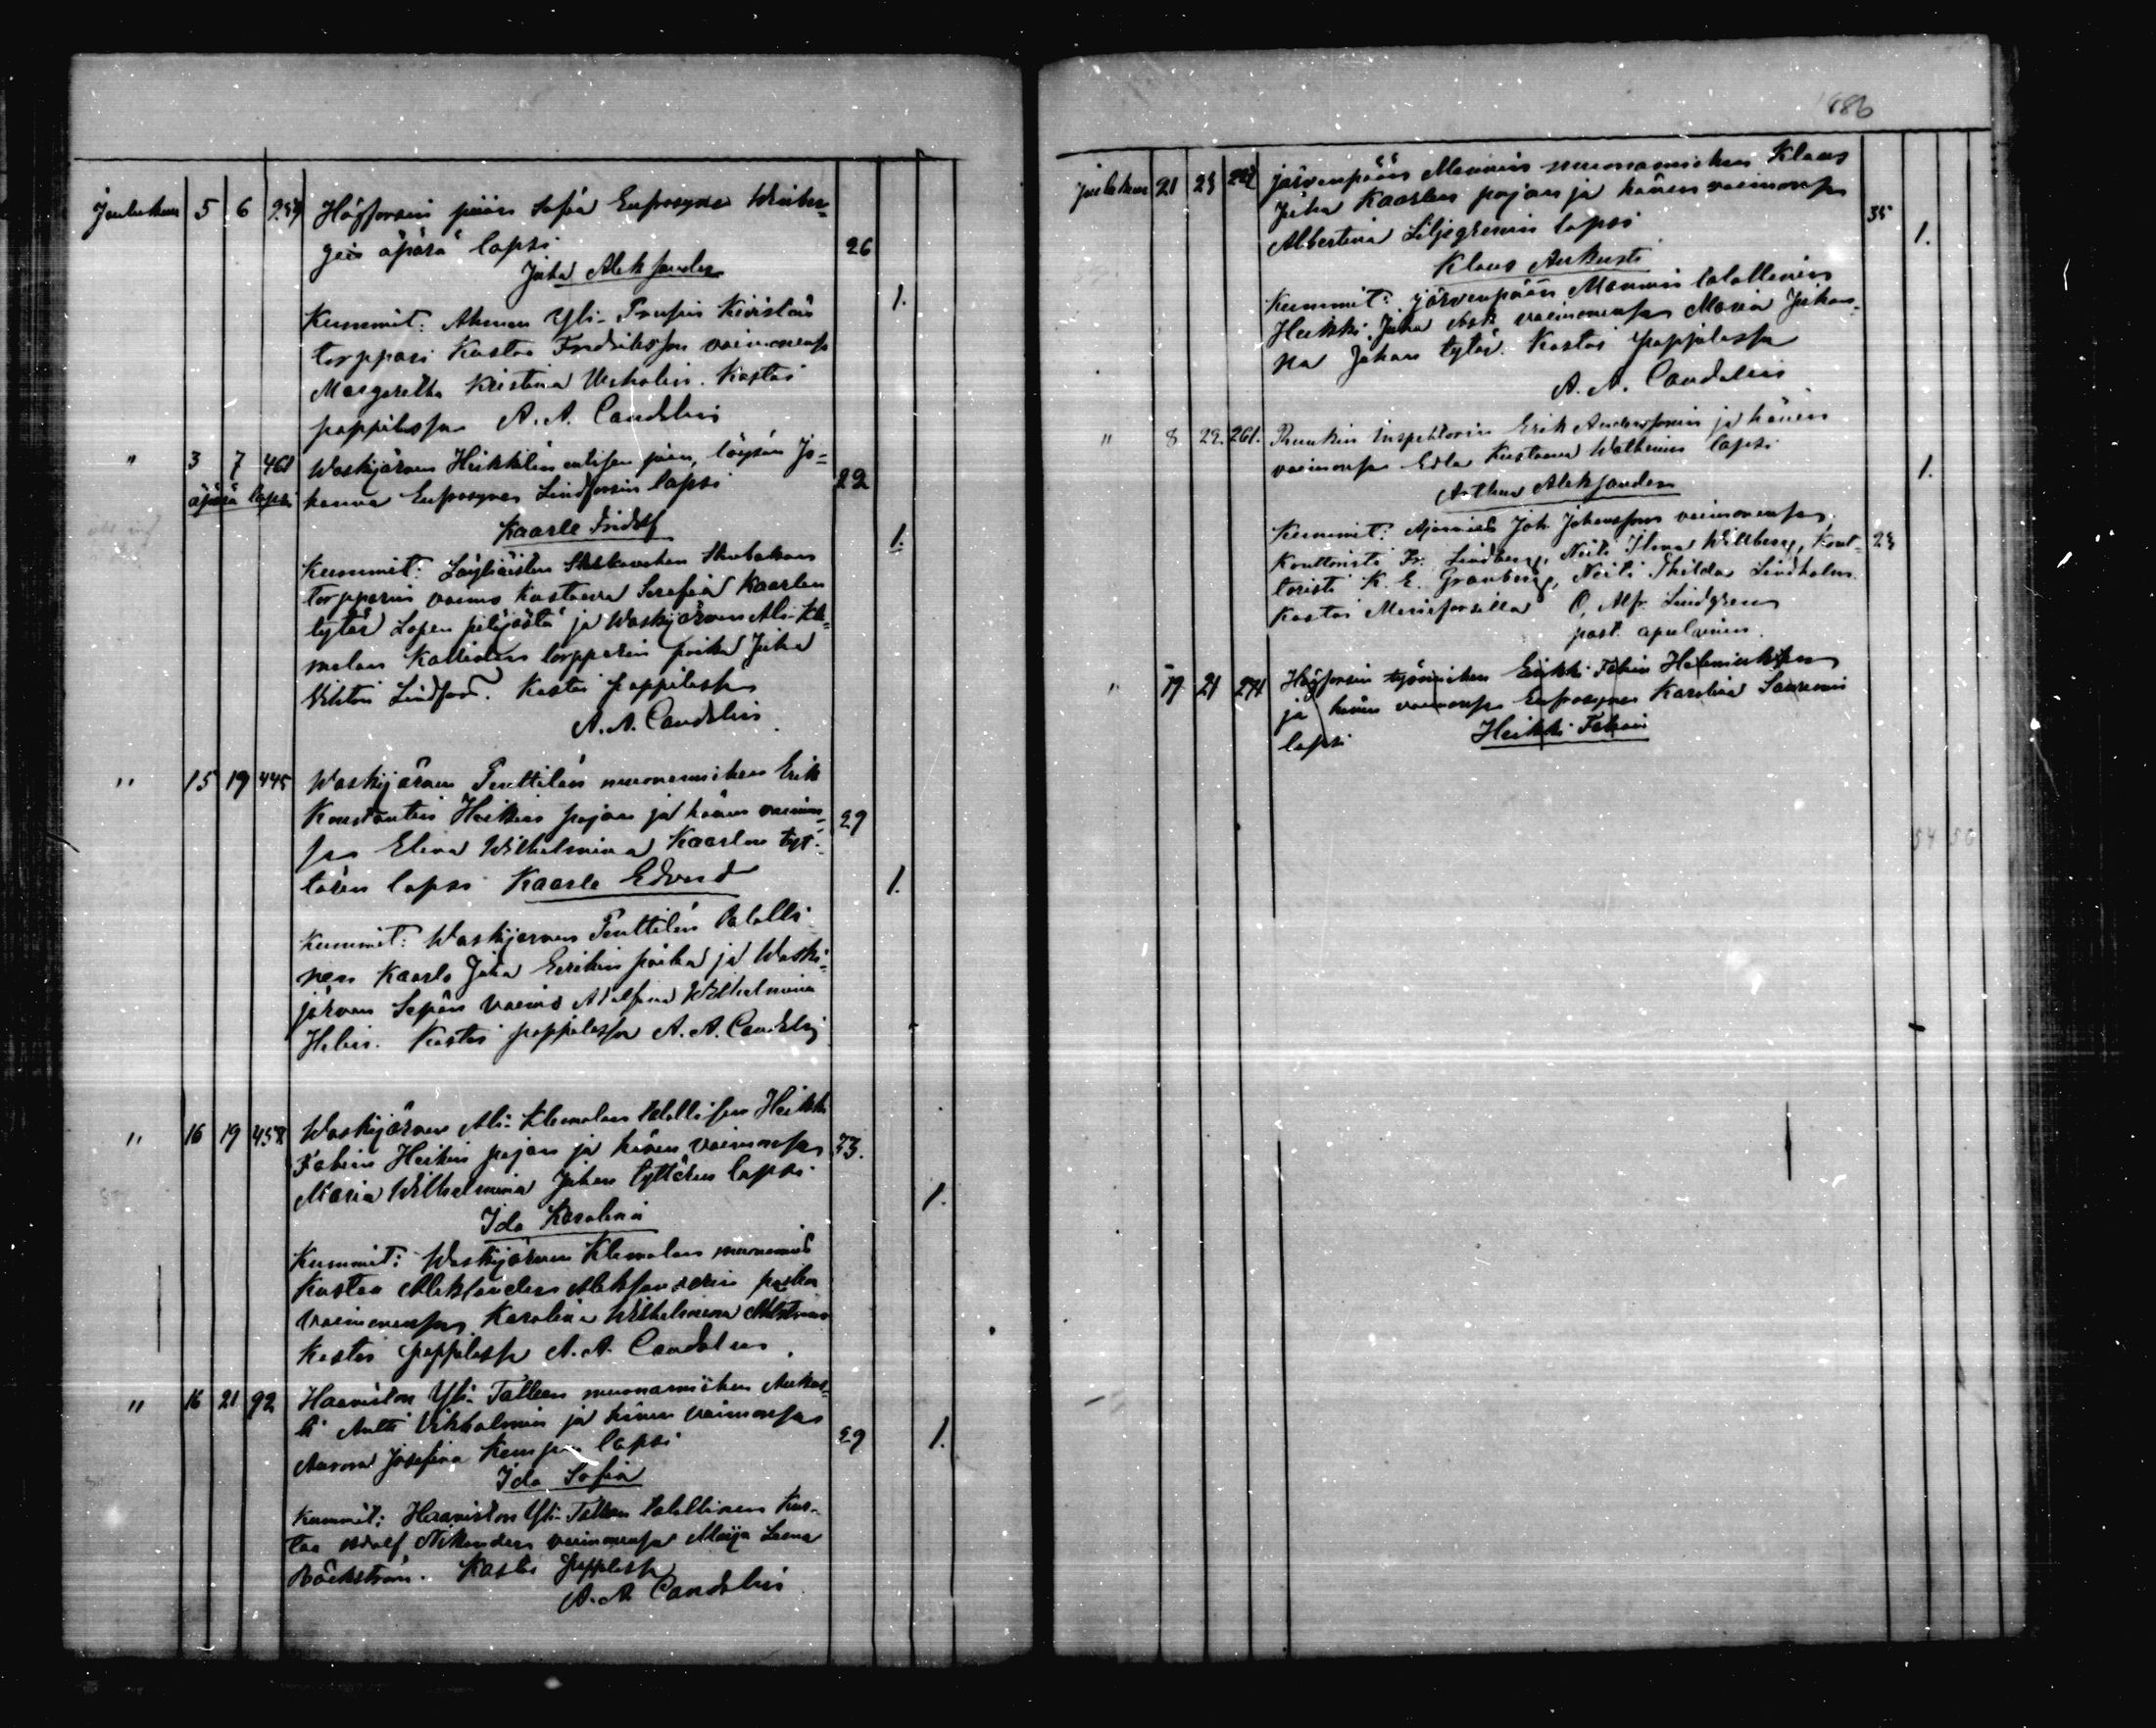 Joulukuu 5 6 259 Högforsin piian Sofia Eufrosyne Winber-
gin äpärä lapsi 26
Juha Aleksander
Kummit: Ahmoo Yli- Prusin Kivistön 1.
torppari Kustaa Fredriksson vaimonensa
Margaretha Kristina. Kastoi
pappilassa A. A. Candelin
" 3 7 461 Waskijärven Heikkilän entisen piian, löysän Jo-
äpärä lapsi hanna Eufrosyne Lindforsin lapsi 22
Kaarle Fridolf 1.
Kummit: Läyliäisten
torpparin vaimo Kustaava Serafia Kaarlen
tytär Lopen pitäjästä ja Waskijärven Ali-Kle-
melan Kallion torpparin poika Juha
Viktor Lindfors. Kastoi pappilassa
A. A. Candelin.
" 15 19 445 Waskijärven Penttilän muonamiehen Erik
Konstantin Heikin pojan ja hänen vaimon- 29
sa Elina Wilhelmina Kaarlon tyt-
tären lapsi Kaarle Edvard 1.
Kummit: Waskijärven Penttilän talolli
nen Kaarlo Juha Eerikin poika ja Waski-
järven Sepän vaimo Adolfina Wilhelmina
Helin. Kastoi pappilassa A. A. Candelin
" 16 19 458 Waskijärven Ali-Klemolan talollisen Heikki
Fabian Heikin pojan ja hänen vaimonsa 33.
Maria Wilhelmina Juhan tyttären lapsi 1.
Ida Karolina
Kummit: Waskijärven Klemolan muonamies
Kustaa Aleksander Aleksanderin poika
vaimonensa Karolina Wilhelmina
Kastoi pappilassa A. A. Candelin.
" 16 21 92 Haaviston Yli- Tallaan muonamiehen Aukus-
ti Antti Vikholmin ja hänen vaimonsa
Aurora Josefina lapsi 29 1.
Ida Sofia
Kummit: Haaviston Yli-Tallaan talollinen Kus-
taa Adolf Nikander vaimonensa Maija Leena
Bäckström. Kastoi pappilassa
A. A. Candelin
1886
Joulukuu 21 23 Järvenpään Mannin muonamiehen Klaus
Juha Kaarlen pojan ja hänen vaimonsa 35
Albertina Liljegrenin lapsi 1.
Klaus Aukusti
Kummit: Järvenpään Mannin talollinen
Heikki Juha vaimonensa Maria Juhan-
na Juhan tytär. Kastoi pappilassa
A. A. Candelin
" 8 29. 261. Ruukin Inspehtorin Erik Anderssonin ja hänen
vaimonsa Edla Kustaava Wathénin lapsi 1.
Arthur Aleksander
Kummit: Ajomies Joh. Johansson vaimonensa,
Konttoristi Fr. Lindberg, Neiti Ilma Willberg, Kont- 23
toristi K. E. Granberg, Neiti Thilda Lindholm.
Kastoi O. Alfr. Lindgren
past. apulainen.
" 19 21 271 Högforsin työmiehen Erikki Fabian Heleniuksen
ja hänen vaimonsa Eufrosyne Karolina
lapsi Heikki Fabian
54 50